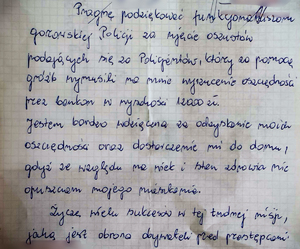 Pragnę podziękować funkcjonariuszom
gorzowskiej Policji za ujęcie oszustów
podających się za Policjantów, który za pomocą
gróźb wymusili na mnie wyrzucenie oszczędności
przez balkon w wysokości 12000 zł.
Jestem bardzo wdzięczna za odzyskanie moich
oszczędności oraz dostarczenie mi do domu,
gdyż ze względu na wiek i stan zdrowia nie
opuszczam mojego mieszkania.
Życzę wielu sukcesów w tej trudnej misji,
jaką jest obrona obywateli przed przestępcami